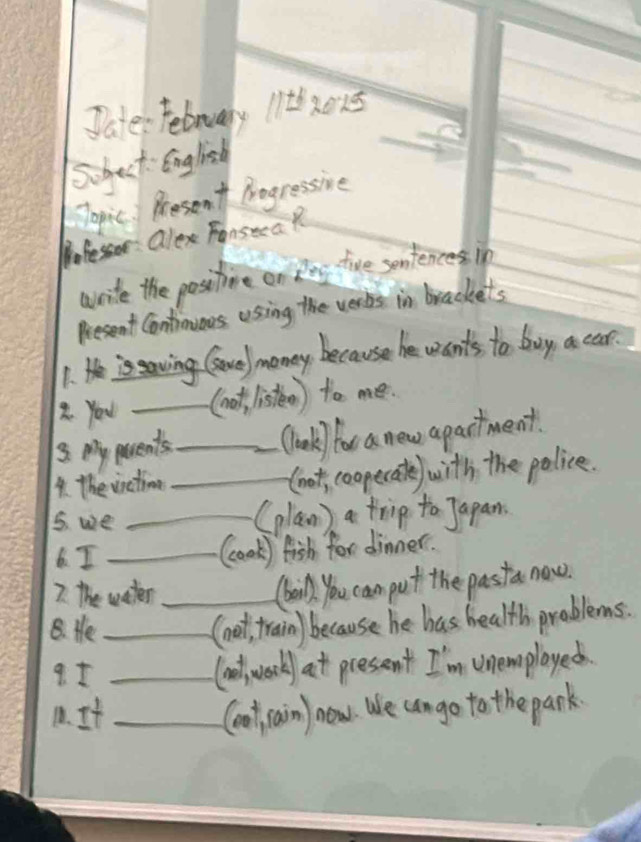 Date: February 11th 2025
Subject: English
Topic: Present Progressive
Professor: Alex Fonseca R
Write the positive or negative sentences in
Present Continuous using the verbs in brackets
1. He is saving (save) money because he wants to buy a car.
2. You ______ (not, listen) to me.
3. My parents ______ (look) for a new apartment.
4. The victim ______ (not, cooperate) with the police.
5. We ______ (plan) a trip to Japan.
6. I ______ (cook) fish for dinner.
7. The water ______ (boil). You can put the pasta now.
8. He ______ (not, train) because he has health problems.
9. I ______ (not, work) at present I'm unemployed.
10. It ______ (not, rain) now. We can go to the park.